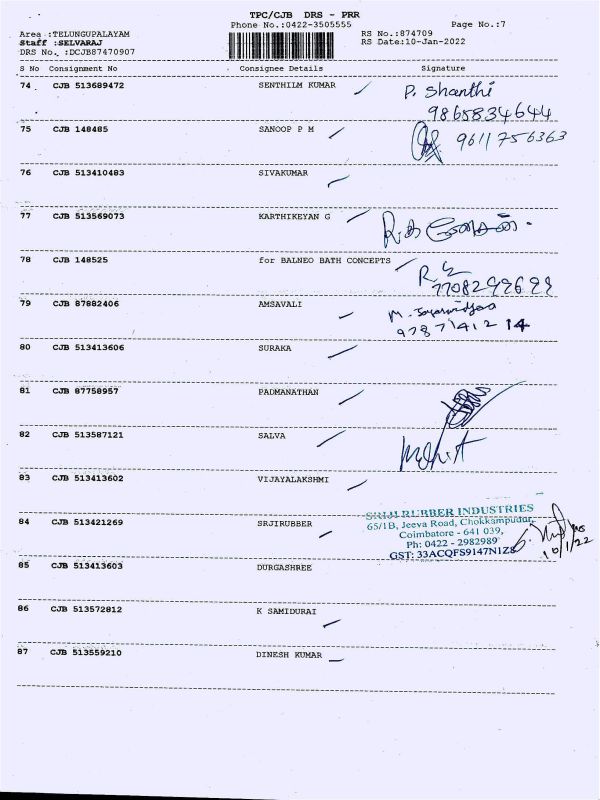 TPC/CJB DRS - PRR
Phone No.:0422-3505555 Page No.:7
Area :TELUNGUPALAYAM RS No.:874709
Staff :SELVARAJ RS Date:10-Jan-2022
DRS No. :DCJB87470907
S No Consignment No Consignee Details Signature
74 CJB 513689472 SENTHILM KUMAR P. Shanthi
9865834644
75 CJB 148485 SANOOP P M 9611756363
76 CJB 513410483 SIVAKUMAR
77 CJB 513569073 KARTHIKEYAN G
78 CJB 148525 for BALNEO BATH CONCEPTS
7708299699
79 CJB 87882406 AMSAVALI
9787141214
80 CJB 513413606 SURAKA
81 CJB 87758957 PADMANATHAN
82 CJB 513587121 SALVA Mohit
83 CJB 513413602 VIJAYALAKSHMI
SRIJI RUBBER INDUSTRIES
84 CJB 513421269 SRJIRUBBER 65/1B, Jeeva Road, Chokkampudur,
Coimbatore - 641 039,
Ph: 0422 - 2982989
GST: 33ACQFS9147N1Z8 10/1/22
85 CJB 513413603 DURGASHREE
86 CJB 513572812 K SAMIDURAI
87 CJB 513559210 DINESH KUMAR